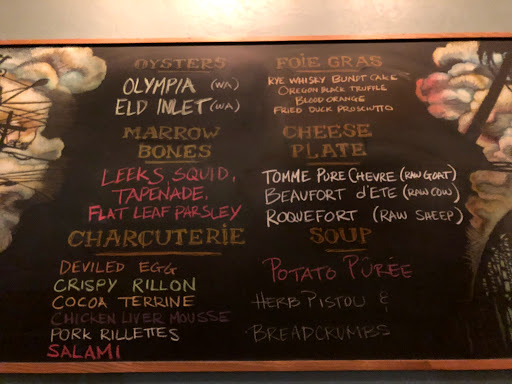 OYSTERS
OLYMPIA (WA)
ELD INLET (WA)
MARROW
BONES
LEEKS SQUID,
TAPENADE,
FLAT LEAF PARSLEY
CHARCUTERIE
DEVILED EGG
CRISPY RILLON
COCOA TERRINE
CHICKEN LIVER MOUSSE
PORK RILLETTES
SALAMI
FOIE GRAS
RYE WHISKY BUNDT CAKE
OREGON BLACK TRUFFLE
BLOOD ORANGE
FRIED DUCK PROSCIUTTO
CHEESE
PLATE
TOMME PURE CHEVRE (RAW GOAT)
BEAUFORT D'ETE (RAW COW)
ROQUEFORT (RAW SHEEP)
SOUP
POTATO PÛRÉE
HERB PISTOU &
BREADCRUMBS